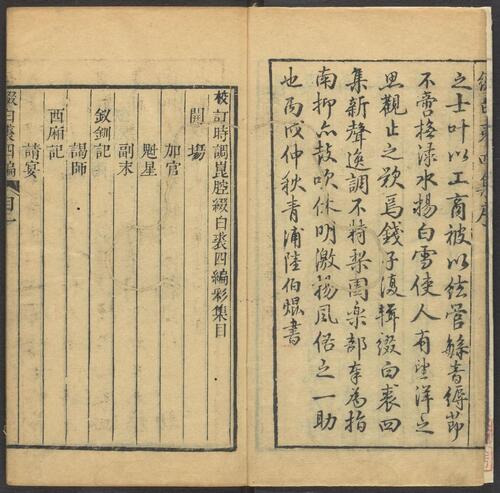 之士叶以工商被以絃管繇音縟節
不啻格渌水揚白雪使人有望洋之
思觀止之歎焉錢子復輯綴白裘四
集新聲逸調不特梨園樂部奉為指
南抑亦鼓吹休明激揚風俗之一助
也丙戌仲秋青浦陸伯焜書
校訂時調崑腔綴白裘四編彩集目
開場
加官
魁星
副末
釵釧記
謁師
西廂記
請宴
綴白裘四編
目一